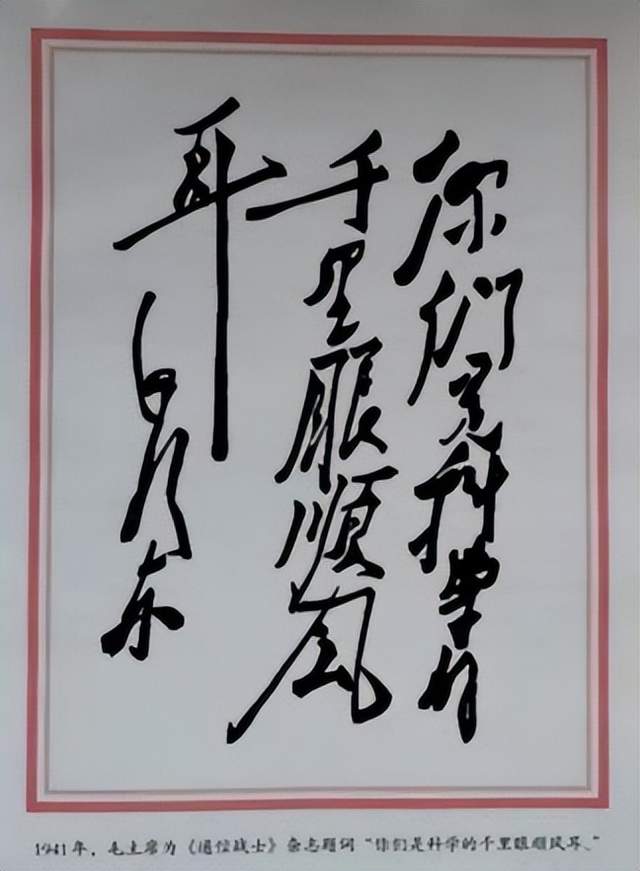 你们是科学的
千里眼顺风
耳 毛泽东
1941年，毛主席为《通信战士》杂志题词“你们是科学的千里眼顺风耳。”